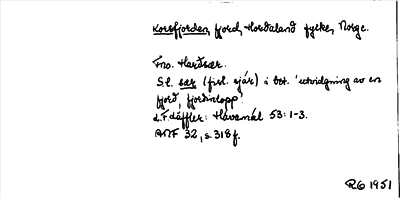 Korsfjorden, fjord, Hordaland fylke, Norge.
Fno. Harðsær.
S.l. sær (fisl. sjár) i bet. 'utvidgning av en
fjord, fjordinlopp'.
L.F. Läffler: Hávamál 53:1-3.
ANF 32, s. 318 f.
RG 1951